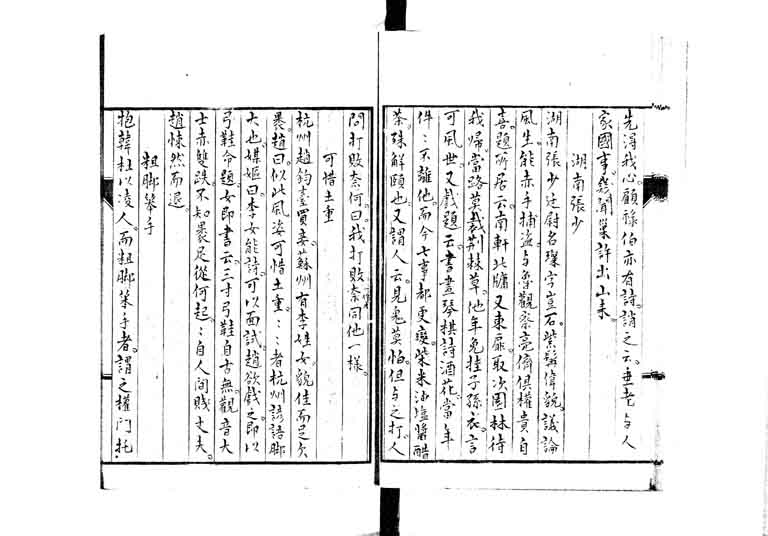 先淂我心顧禄伯亦有詩誚之云垂老与人
家國事幾聞巢許出山来
湖南張少
湖南張少廷尉名璨字豈石紫髯偉貌議論
風生能赤手捕盗与魯觀察亮儕俱權貴自
喜題所居云南軒北牖又東扉取次園林待
我帰當路莫裁荆棘草他年免挂子孫衣言
可風世又戱題云書畫琴棋詩酒花當年
件〻不離他而今七事都更变柴米油塩醬醋
茶殊解頤也又謂人云見鬼莫怕但与之打人
問打敗奈何曰我打敗纔同他一様
可惜土重
杭州趙鈞臺買妾蘇州有李姓女貌佳而足欠
裹趙曰似此風姿可惜土重〻〻者杭州諺語脚
大也媒嫗曰李女能詩可以面試趙欲戱之即以
弓鞋命題女即書云三寸弓鞋自古無觀音大
士赤雙趺不知裹足從何起〻自人间賤丈夫
趙悚然而退
粗脚笨手
抱韓杜以凌人而粗脚笨手者謂之權門托